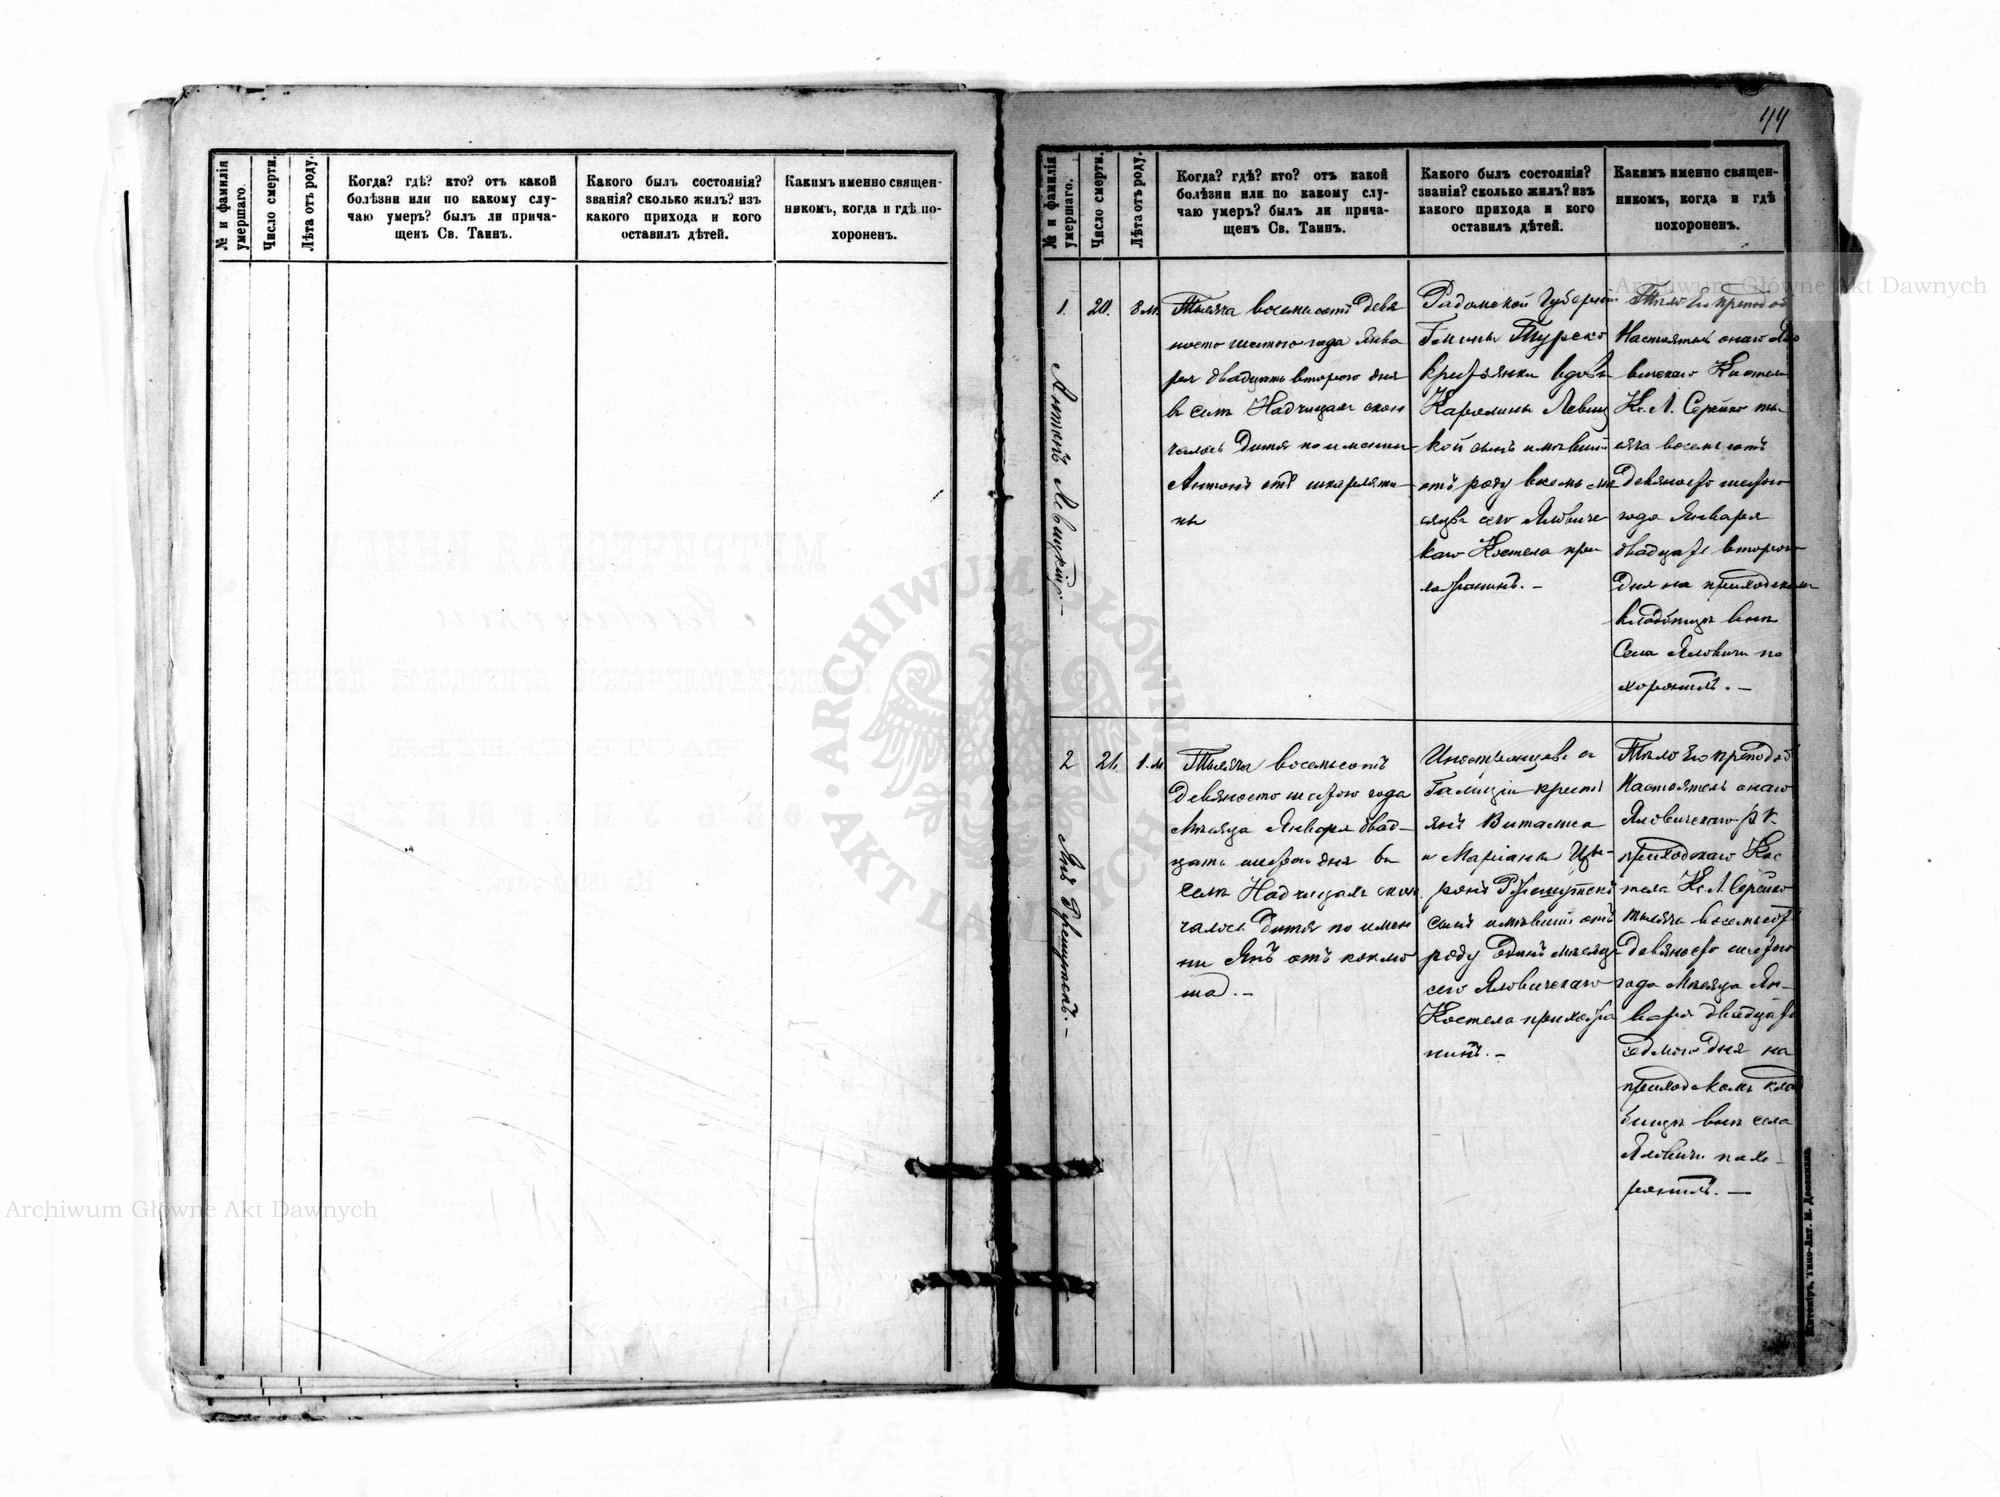 № и фамилія умершаго.
Число смерти.
Лѣта отъ роду.
Когда? гдѣ? кто? отъ какой
болѣзни или по какому слу-
чаю умеръ? былъ ли прича-
щенъ Св. Таинъ.
Какого былъ состоянія?
званія? сколько жилъ? изъ
какого прихода и кого
оставилъ дѣтей.
Какимъ именно священ-
никомъ, когда и гдѣ по-
хороненъ.
44
№ и фамилія умершаго.
Число смерти.
Лѣта отъ роду.
Когда? гдѣ? кто? отъ какой
болѣзни или по какому слу-
чаю умеръ? былъ ли прича-
щенъ Св. Таинъ.
Какого былъ состоянія?
званія? сколько жилъ? изъ
какого прихода и кого
оставилъ дѣтей.
Какимъ именно священ-
никомъ, когда и гдѣ
похороненъ.
1.
Антонъ Левицкій.—
20.
8 м.
Тысяча восемьсотъ девя
носто шестого года Янва
ря двадцать второго дня
въ селѣ Надчицахъ скон
чалось дитя по имени
Антонъ отъ шкарляти
ны
Радомской Губерніи
Гмины Турско
крестьянки вдовы
Каролины Левиц
кой сынъ имѣвшій
отъ роду восемь мѣ
сяцевъ сего Яловиче
каго Костела при
хожанинъ.—
Тѣло его преподоб
Настоятель онаго Яло
вичскаго Костела
Кс. Л. Серейко ты
сяча восемьсотъ
девяносто шестого
года Января
двадцать второго
дня на приходскомъ
кладбищѣ внѣ
Села Яловичи по
хоронилъ.—
2
Янъ
21.
1. м.
Тысяча восемьсотъ
девяносто шестого года
Мѣсяца Января двад-
цать шестого дня въ
селѣ Надчицахъ скон
чалось дитя по имен
ни Янъ отъ коклю
ша.—
Иностранцевъ съ
Галиціи кресть
янъ Виталиса
и Маріанны
сынъ имѣвшій отъ
роду одинъ мѣсяцъ
сего Яловичскаго
Костела прихожа
нинъ.—
Тѣло его преподоб
Настоятель онаго
Яловичскаго р. к.
приходскаго Кос
тела Кс. Л. Серейко
тысяча восемьсотъ
девяносто шестого
года Мѣсяца Ян-
варя двадцать
седмого дня на
приходскомъ клад
бищѣ внѣ села
Яловичи похо-
ронилъ.—
Житоміръ, Типо-Лит. М. Дененмана.
Archiwum Główne Akt Dawnych
Archiwum Główne Akt Dawnych
ARCHIWUM GŁÓWNE AKT DAWNYCH